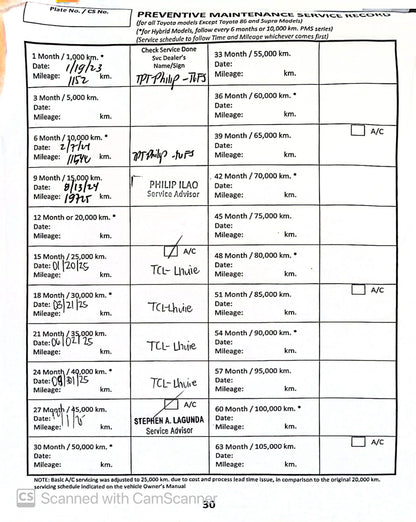 Plate No. / CS No.
PREVENTIVE MAINTENANCE SERVICE RECORD
(for all Toyota models Except Toyota 86 and Supra Models)
(*for Hybrid Models, follow every 6 months or 10,000 km. PMS series)
(Service schedule to follow Time and Mileage whichever comes first)
1 Month / 1,000 km. *
Date: 1/19/23
Mileage: 1152 km.
Check Service Done
Svc Dealer's
Name/Sign
TPT Philip - TOFS
33 Month / 55,000 km.
Date:
Mileage: km.
3 Month / 5,000 km.
Date:
Mileage: km.
36 Month / 60,000 km. *
Date:
Mileage: km.
6 Month / 10,000 km. *
Date: 2/7/24
Mileage: km.
TPT Philip
39 Month / 65,000 km.
Date:
Mileage: km.
A/C
9 Month / 15,000 km.
Date: 8/13/24
Mileage: 19725 km.
PHILIP ILAO
Service Advisor
42 Month / 70,000 km. *
Date:
Mileage: km.
12 Month or 20,000 km. *
Date:
Mileage: km.
45 Month / 75,000 km.
Date:
Mileage: km.
15 Month / 25,000 km.
Date: 01/20/25
Mileage: km.
A/C
TCL- Lhuie
48 Month / 80,000 km. *
Date:
Mileage: km.
18 Month / 30,000 km. *
Date: 05/21/25
Mileage: km.
TCL- Lhuie
51 Month / 85,000 km.
Date:
Mileage: km.
A/C
21 Month / 35,000 km.
Date: 06/02/25
Mileage: km.
TCL- Lhuie
54 Month / 90,000 km. *
Date:
Mileage: km.
24 Month / 40,000 km. *
Date: /31/25
Mileage: km.
TCL- Lhuie
57 Month / 95,000 km.
Date:
Mileage: km.
27 Month / 45,000 km.
Date:
Mileage: km.
A/C
STEPHEN A. LAGUNDA
Service Advisor
60 Month / 100,000 km. *
Date:
Mileage: km.
30 Month / 50,000 km. *
Date:
Mileage: km.
63 Month / 105,000 km.
Date:
Mileage: km.
A/C
NOTE: Basic A/C servicing was adjusted to 25,000 km. due to cost and process lead time issue, in comparison to the original 20,000 km.
servicing schedule indicated on the vehicle Owner's Manual
CS Scanned with CamScanner
30